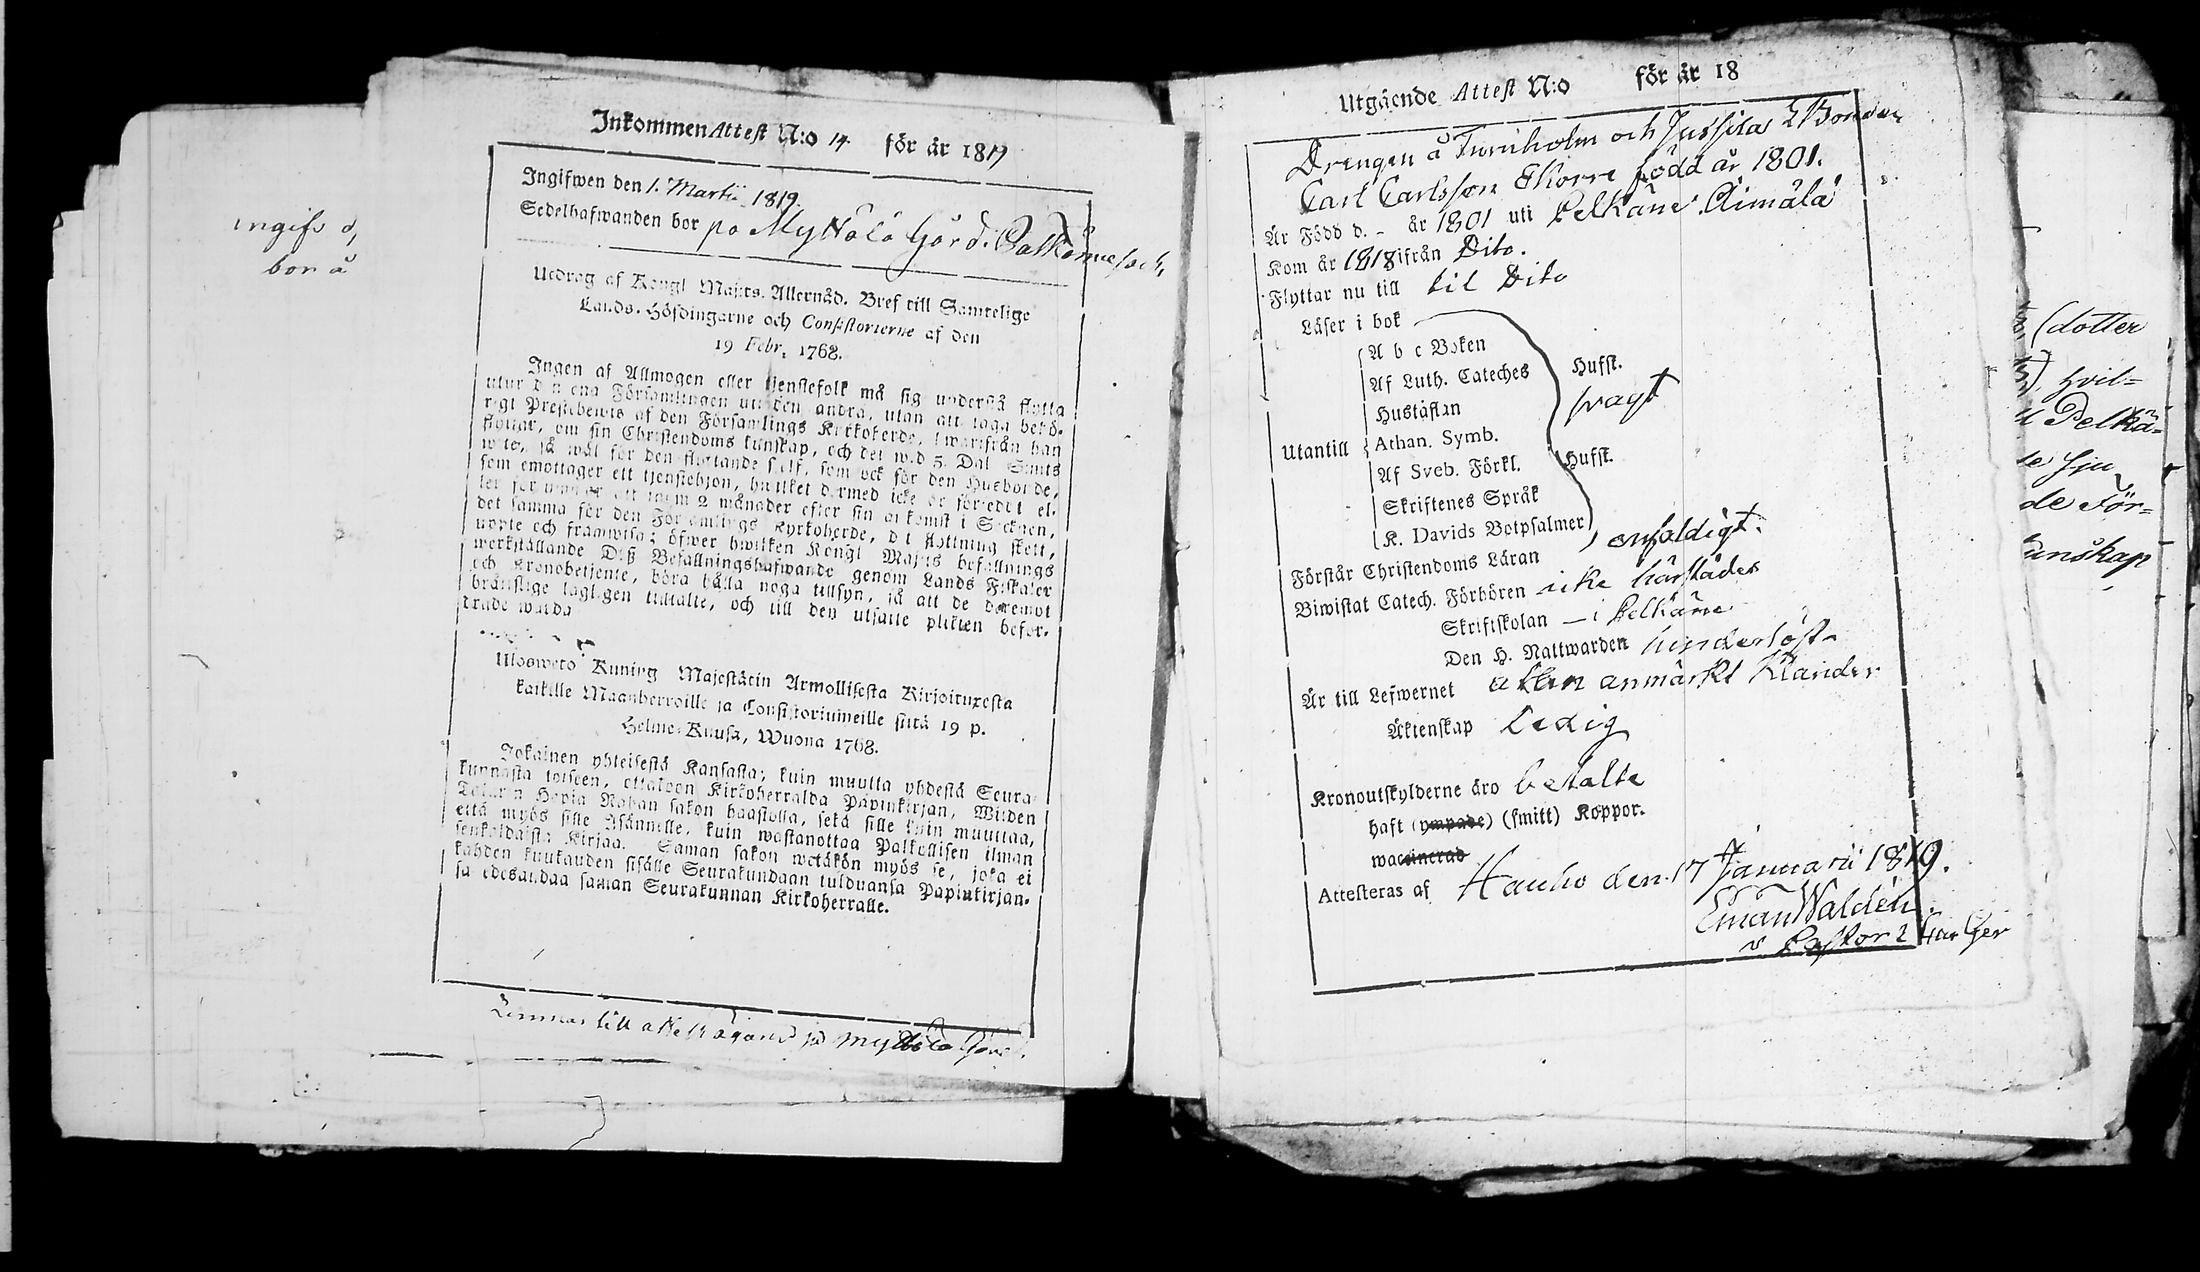 ingifv d,
bor å
Inkommen Attest N:o 14 för år 1819
Ingifwen den 1. Martii 1819.
Sedelhafwanden bor på Myttölä Görd. Palkane sock,
Utdrag af Kongl Maj:ts. Allernåd. Bref till Samtelige
Lands-Höfdingarne och Consistorierne af den
19 Febr. 1768.
Ingen af Allmogen eller tjenstefolk må sig understå flytta
utur den ena Församlingen uti den andra, utan att taga behö-
rigt Prestebewis af den Församlings Kyrkoherde, hwarifrån han
flyttar, om sin Christendoms kunskap, och det wid 5. Dal. Smts
wite, så wäl för den flyttande sielf, som ock för den Husbonde,
som emottager ett tjenstehjon, hwilket dermed icke är försedt el-
ler för mycket ett inom 2 månader efter sin ankomst i Socknen,
det samma för den Församlings Kyrkoherde, dit flyttning skett,
uppte och framwisa; öfwer hwilken Kongl Maj:ts befallnings
werkställande Deß Befallningshafwande genom Lands Fiskaler
och Kronobetjente, böra hålla noga tillsyn, så att de deremot
bråttslige lagligen tilltalte, och till den utsatte plikten befor-
drade warda
Uloswetö Kuning Majestätin Armollisesta Kirjoituxesta
kaikille Maanherroille ja Consistoriumeille siitä 19 p.
Helme-Kuusa, Wuona 1768.
Jokainen yhteisestä Kansasta; kuin muutta yhdestä Seura-
kunnasta toiseen, ottakoon Kirkoherralda Papinkirjan, Wiiden
Talarin Hopia Rahan sakon haastolla, sekä sille kuin muuttaa,
että myös sille Isännälle, kuin wastanottaa Palkollisen ilman
senkaldaista Kirjaa. Saman sakon wetäkön myös se, joka ei
kahden kuukauden sisälle Seurakundaan tulduansa Papinkirjan-
sa edesandaa saman Seurakunnan Kirkoherralle.
Lemnas till attestägaren på Myttölä Görd.
Utgående Attest N:o för år 18
Drengen å Turniholm och Jussila Bonden
Carl Carlsson Skorre född år 1801.
Är Född d. - år 1801 uti Pelkäne Äimälä
Kom år 1818 ifrån Dito.
Flyttar nu till til Dito
Läser i bok
A b c Boken
Af Luth. Cateches Hufst.
Hustaflan svagt
Utantill Athan. Symb.
Af Sveb. Förkl. Hufst.
Skriftenes Språk
K. Davids Botpsalmer
Förstår Christendoms Läran enfaldigt.
Biwistat Catech. Förhören icke härstädes
Skriftskolan - i Pelkäne
Den H. Nattwarden hinderlöst
Är till Lefwernet utan anmärkt klander
Äktenskap Ledig
Kronoutskylderne äro betalte
haft (ympade) (smitt) Koppor.
waccinerad
Attesteras af Hauho den 17 Januarii 1819.
Eman Walden.
v Pastor
(dotter
hvil=
Pelkä=
de För=
unskap